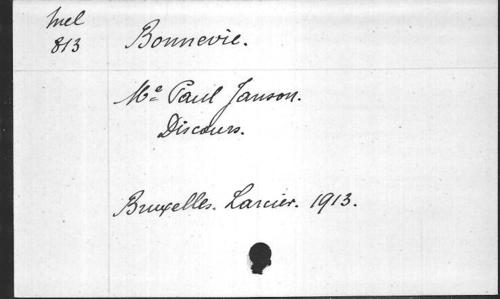 Mel
813
Bonnevie.
Me Paul Janson.
Discours.
Bruxelles. Larcier. 1913.